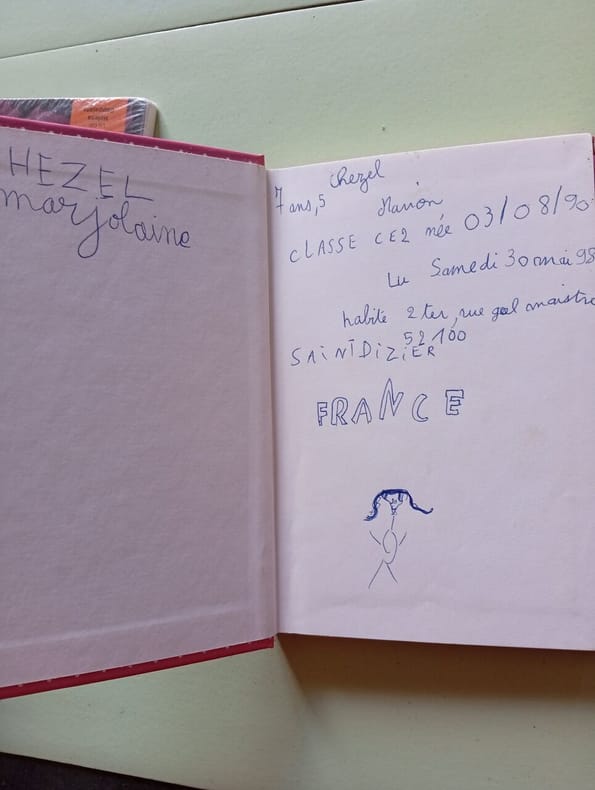 HEZEL
marjolaine
Chezel
7 ans,5 Marion
CLASSE CE2 née 03/08/90
Lu Samedi 30 mai 98
habite 2 ter, rue gal maistre
52100
SAINT DIZIER
FRANCE